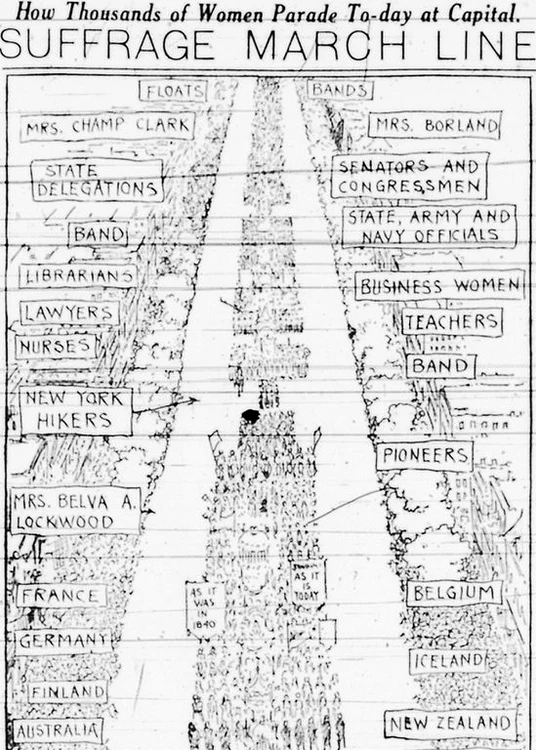 How Thousands of Women Parade To-day at Capital.
SUFFRAGE MARCH LINE
FLOATS
BANDS
MRS. CHAMP CLARK
MRS. BORLAND
STATE
DELEGATIONS
SENATORS AND
CONGRESSMEN
BAND
STATE, ARMY AND
NAVY OFFICIALS
LIBRARIANS
BUSINESS WOMEN
LAWYERS
TEACHERS
NURSES
BAND
NEW YORK
HIKERS
PIONEERS
MRS. BELVA A.
LOCKWOOD
AS IT
WAS
IN
1840
AS IT
IS
TODAY
FRANCE
BELGIUM
GERMANY
ICELAND
FINLAND
AUSTRALIA
NEW ZEALAND